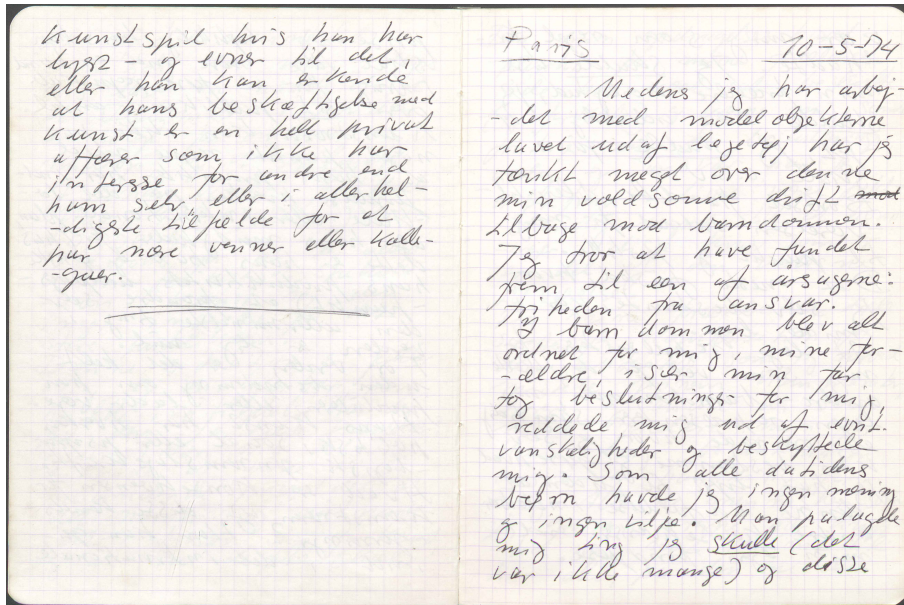 kunstspil hvis han har
lyst – og evner til det,
eller han kan erkende
at hans beskæftigelse med
kunst er en helt privat
affære som ikke har
interesse for andre end
ham selv, eller i allerhel-
-digste tilfælde for et
par nære venner eller kolle-
-guer.
Paris 10-5-74
Medens jeg har arbej-
-det med modelobjekterne
lavet udaf legetøj har jeg
tænkt meget over denne
min voldsomme drift mod
tilbage mod barndommen.
Jeg tror at have fundet
frem til een af årsagerne:
friheden fra ansvar.
I barndommen blev alt
ordnet for mig, mine for-
-ældre, især min far
tog beslutninger for mig,
reddede mig ud af evnt.
vanskeligheder og beskyttede
mig. Som alle datidens
børn havde jeg ingen mening
og ingen vilje. Man pålagde
mig ting jeg skulle (det
var ikke mange) og disse